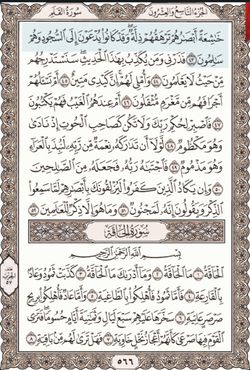 الجزء التاسع والعشرون سورة القلم
خَٰشِعَةً أَبْصَٰرُهُمْ تَرْهَقُهُمْ ذِلَّةٌ وَقَدْ كَانُوا۟ يُدْعَوْنَ إِلَى ٱلسُّجُودِ وَهُمْ
سَٰلِمُونَ ٤٣ فَذَرْنِى وَمَن يُكَذِّبُ بِهَٰذَا ٱلْحَدِيثِ سَنَسْتَدْرِجُهُم
مِّنْ حَيْثُ لَا يَعْلَمُونَ ٤٤ وَأُمْلِى لَهُمْ إِنَّ كَيْدِى مَتِينٌ ٤٥ أَمْ تَسْـَٔلُهُمْ
أَجْرًا فَهُم مِّن مَّغْرَمٍ مُّثْقَلُونَ ٤٦ أَمْ عِندَهُمُ ٱلْغَيْبُ فَهُمْ يَكْتُبُونَ
٤٧ فَٱصْبِرْ لِحُكْمِ رَبِّكَ وَلَا تَكُن كَصَاحِبِ ٱلْحُوتِ إِذْ نَادَىٰ
وَهُوَ مَكْظُومٌ ٤٨ لَّوْلَآ أَن تَدَٰرَكَهُۥ نِعْمَةٌ مِّن رَّبِّهِۦ لَنُبِذَ بِٱلْعَرَآءِ
وَهُوَ مَذْمُومٌ ٤٩ فَٱجْتَبَٰهُ رَبُّهُۥ فَجَعَلَهُۥ مِنَ ٱلصَّٰلِحِينَ
٥٠ وَإِن يَكَادُ ٱلَّذِينَ كَفَرُوا۟ لَيُزْلِقُونَكَ بِأَبْصَٰرِهِمْ لَمَّا سَمِعُوا۟
ٱلذِّكْرَ وَيَقُولُونَ إِنَّهُۥ لَمَجْنُونٌ ٥١ وَمَا هُوَ إِلَّا ذِكْرٌ لِّلْعَٰلَمِينَ ٥٢
سورة الحاقة
بِسْمِ ٱللَّهِ ٱلرَّحْمَٰنِ ٱلرَّحِيمِ
ٱلْحَآقَّةُ ١ مَا ٱلْحَآقَّةُ ٢ وَمَآ أَدْرَىٰكَ مَا ٱلْحَآقَّةُ ٣ كَذَّبَتْ ثَمُودُ وَعَادٌۢ
بِٱلْقَارِعَةِ ٤ فَأَمَّا ثَمُودُ فَأُهْلِكُوا۟ بِٱلطَّاغِيَةِ ٥ وَأَمَّا عَادٌ فَأُهْلِكُوا۟ بِرِيحٍ
صَرْصَرٍ عَاتِيَةٍ ٦ سَخَّرَهَا عَلَيْهِمْ سَبْعَ لَيَالٍ وَثَمَٰنِيَةَ أَيَّامٍ حُسُومًا فَتَرَى
ٱلْقَوْمَ فِيهَا صَرْعَىٰ كَأَنَّهُمْ أَعْجَازُ نَخْلٍ خَاوِيَةٍ ٧ فَهَلْ تَرَىٰ لَهُم مِّنۢ بَاقِيَةٍ ٨
٥٦٦